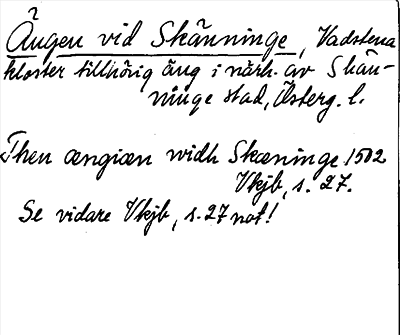 2
Ängen vid Skänninge, Vadstena
kloster tillhörig äng i närh. av Skän-
ninge stad, Österg. l.
Then ængiæn widh Skæninge 1502
Vkjb, s. 27.
Se vidare Vkjb, s. 27 not!